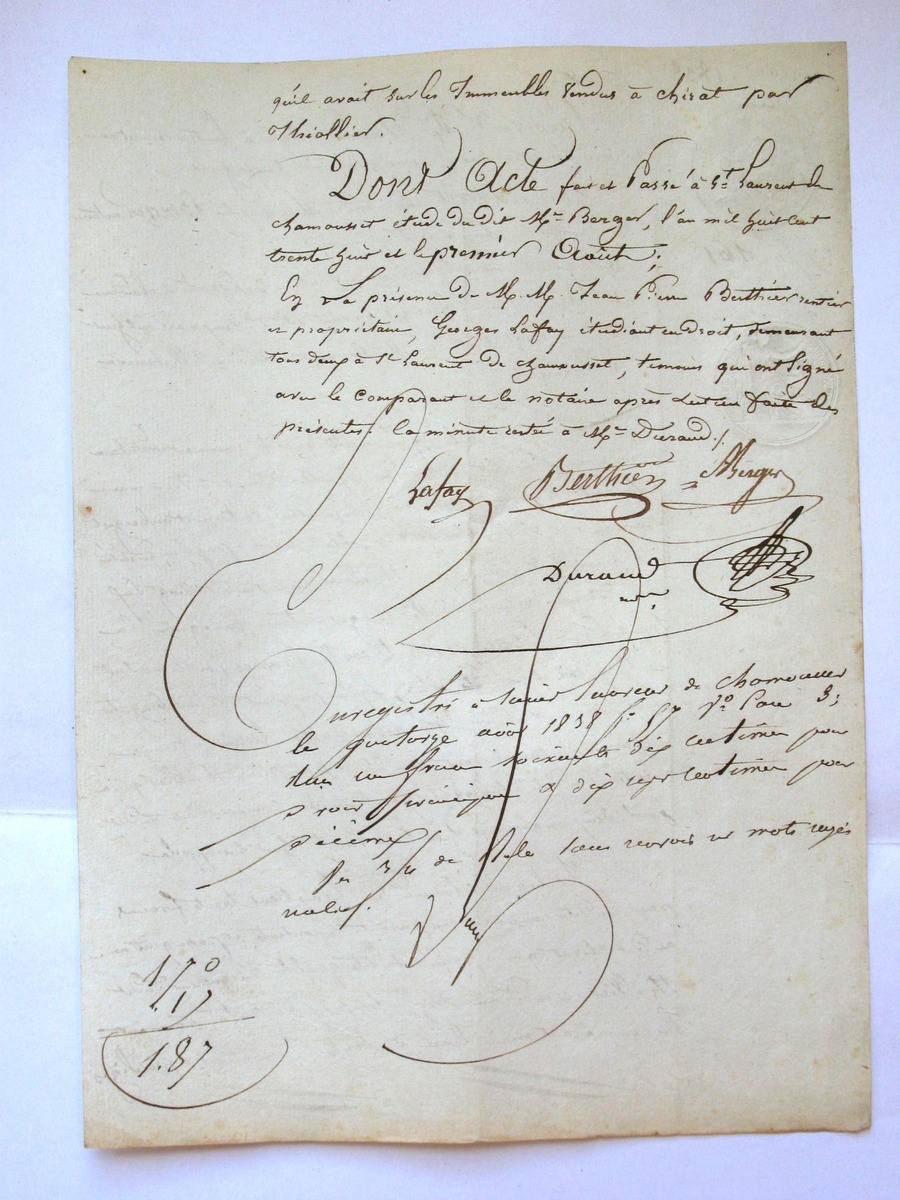 qu'il avait sur les Immeubles vendus à chirat par
Thiollier.
Dont Acte fait et Passé à St. Laurent de
chamousset étude du dit Me. Berger, l'an mil huit cent
trente huit et le premier Août;
En La présence de M. M. Jean Pierre Berthier rentier
et propriétaire, Georges Lafay étudiant en droit, demeurant
tous deux à St Laurent de chamousset, temoins qui ont Signé
avec le comparant et le notaire après Lecture faite des
présentes. la minute restée à Me. Durand./.
Lafay Berthier Berger
Durand
nre.
Enregistré à Saint Laurent de chamousset
le quatorze août 1838 fo 57 vo Case 3;
un franc soixante dix centimes pour
droit principal & dix sept centimes pour
décime./.
de mots rayés
nuls.
1.70
.17
1.87